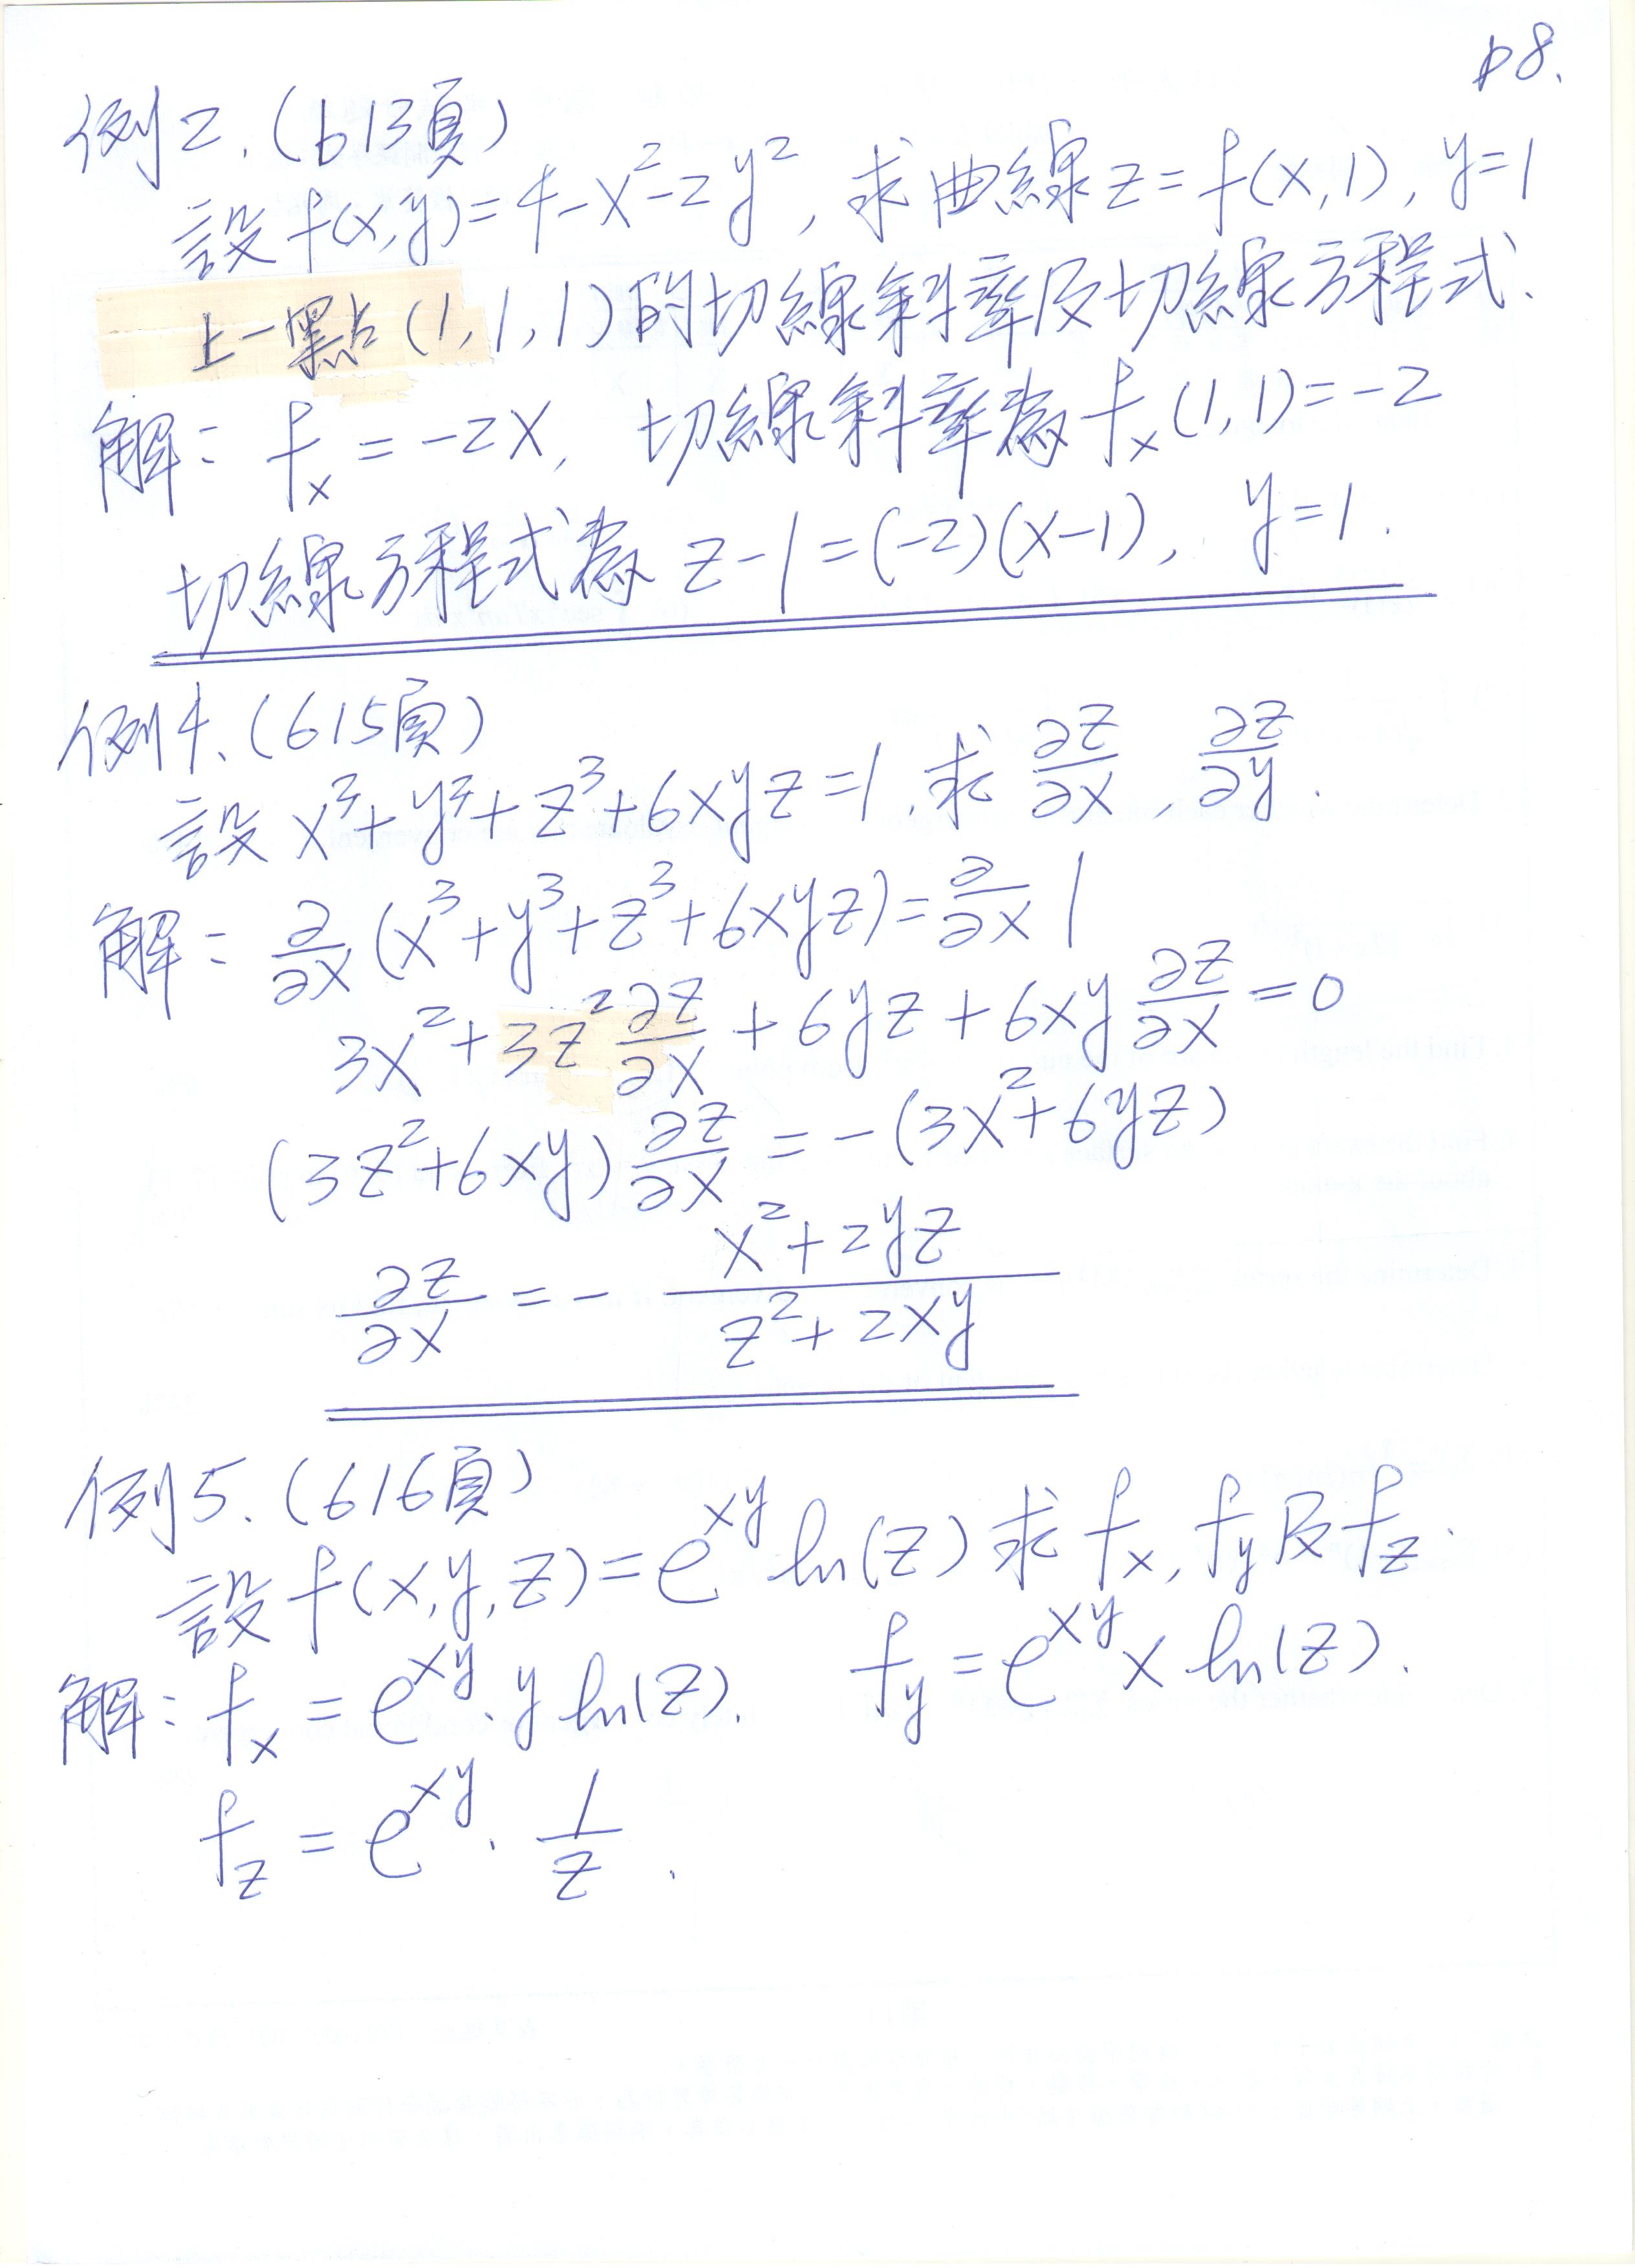 p8.
例2.(613頁)
設 f(x,y)=4-x²-2y², 求曲線 z=f(x,1), y=1
上一點(1,1,1)的切線斜率及切線方程式.
解: fₓ = -2x, 切線斜率為 fₓ(1,1)=-2
切線方程式為 z-1=(-2)(x-1), y=1.
例4.(615頁)
設 x³+y³+z³+6xyz=1, 求 ∂z/∂x, ∂z/∂y.
解: ∂/∂x (x³+y³+z³+6xyz)=∂/∂x 1
3x²+3z² ∂z/∂x + 6yz + 6xy ∂z/∂x = 0
(3z²+6xy) ∂z/∂x = -(3x²+6yz)
∂z/∂x = - (x²+2yz)/(z²+2xy)
例5.(616頁)
設 f(x,y,z)=e^{xy} ln(z) 求 fₓ, f_y 及 f_z.
解: fₓ = e^{xy}·y ln(z). f_y = e^{xy} x ln(z).
f_z = e^{xy}·1/z.